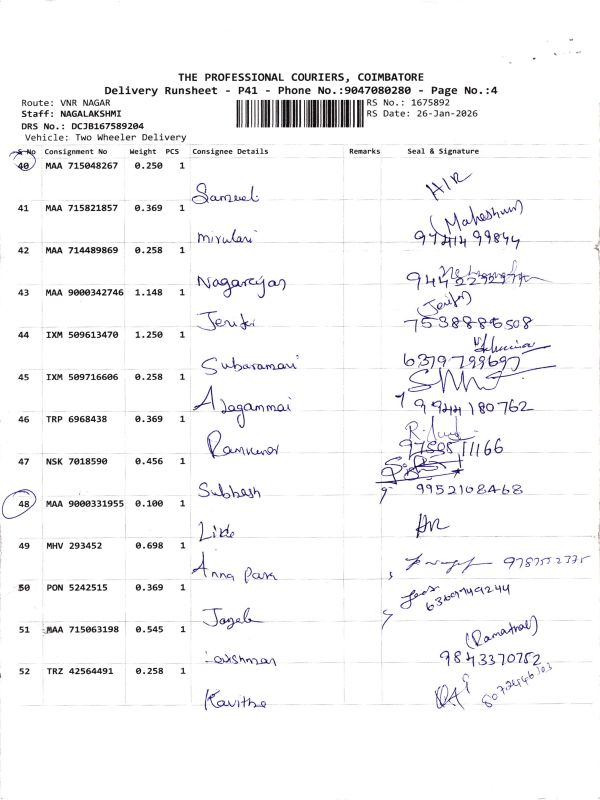 THE PROFESSIONAL COURIERS, COIMBATORE
Delivery Runsheet - P41 - Phone No.:9047080280 - Page No.:4
Route: VNR NAGAR
RS No.: 1675892
Staff: NAGALAKSHMI
RS Date: 26-Jan-2026
DRS No.: DCJB167589204
Vehicle: Two Wheeler Delivery
S No Consignment No Weight PCS Consignee Details Remarks Seal & Signature
40 MAA 715048267 0.250 1
Sameel H/R
41 MAA 715821857 0.369 1
(Maheshwari)
mirulani
42 MAA 714489869 0.258 1
Nagarajan
43 MAA 9000342746 1.148 1
(Jenifer)
Jenifer 7538886508
44 IXM 509613470 1.250 1
6379799697
45 IXM 509716606 0.258 1
Alagammai 9944180762
46 TRP 6968438 0.369 1
Ramkumar
47 NSK 7018590 0.456 1
Subbash 9952108468
48 MAA 9000331955 0.100 1
H/R
49 MHV 293452 0.698 1
Anna Park
50 PON 5242515 0.369 1
51 MAA 715063198 0.545 1
Lakshman 9843370752
52 TRZ 42564491 0.258 1
Kavitha